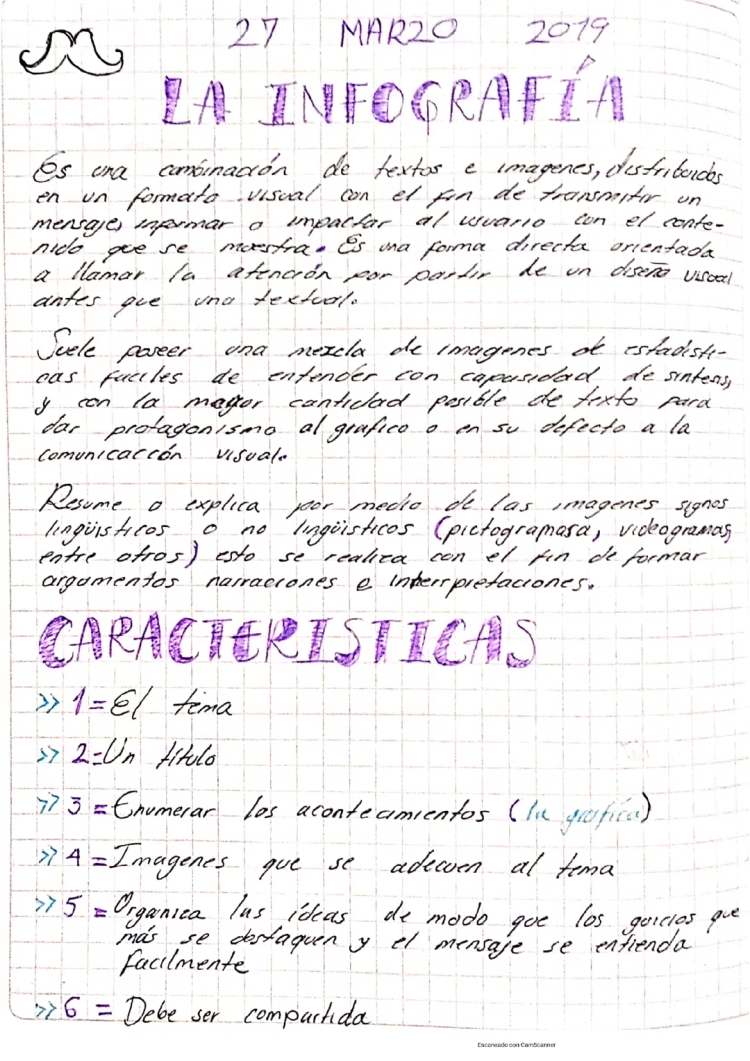 27 MARZO 2019
LA INFOGRAFÍA
Es una combinación de textos e imagenes, distribuidos
en un formato visual con el fin de transmitir un
mensaje, informar o impactar al usuario con el conte-
nido que se muestra. Es una forma directa orientada
a llamar la atención por partir de un diseño visual
antes que uno textual.
Suele poseer una mezcla de imagenes de estadisti-
cas faciles de entender con capasidad de sintesis,
y con la mayor cantidad posible de texto para
dar protagonismo al grafico o en su defecto a la
comunicacción visual.
Resume o explica por medio de las imagenes signos
lingüisticos o no lingüisticos (pictogramasa, videogramas,
entre otros) esto se realiza con el fin de formar
argumentos narraciones e interrpretaciones.
CARACTERISTICAS
>> 1=El tema
>> 2=Un título
>> 3 = Enumerar los acontecimientos (la grafica)
>> 4 = Imagenes que se adecuen al tema
>> 5 = Organiza las ídeas de modo que los que
más se destaquen y el mensaje se entienda
facilmente
>> 6 = Debe ser compartida
Escaneado con CamScanner